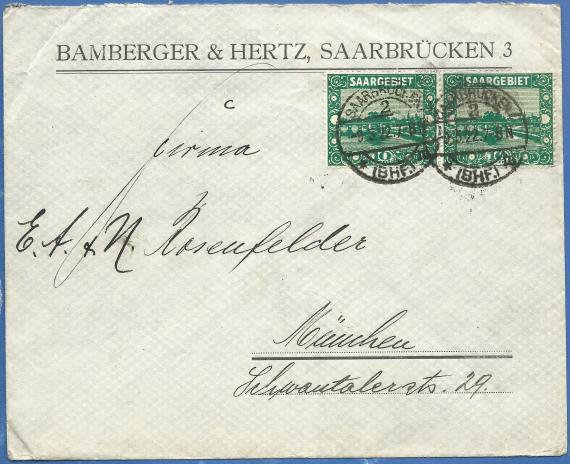 BAMBERGER & HERTZ, SAARBRÜCKEN 3
SAARGEBIET SAARGEBIET
SAARBRÜCKEN SAARBRÜCKEN
2 2
(BHF.) (BHF.)
10 10
c
Firma
E. A. & N. Rosenfelder
München
Schwantalerstr. 29.